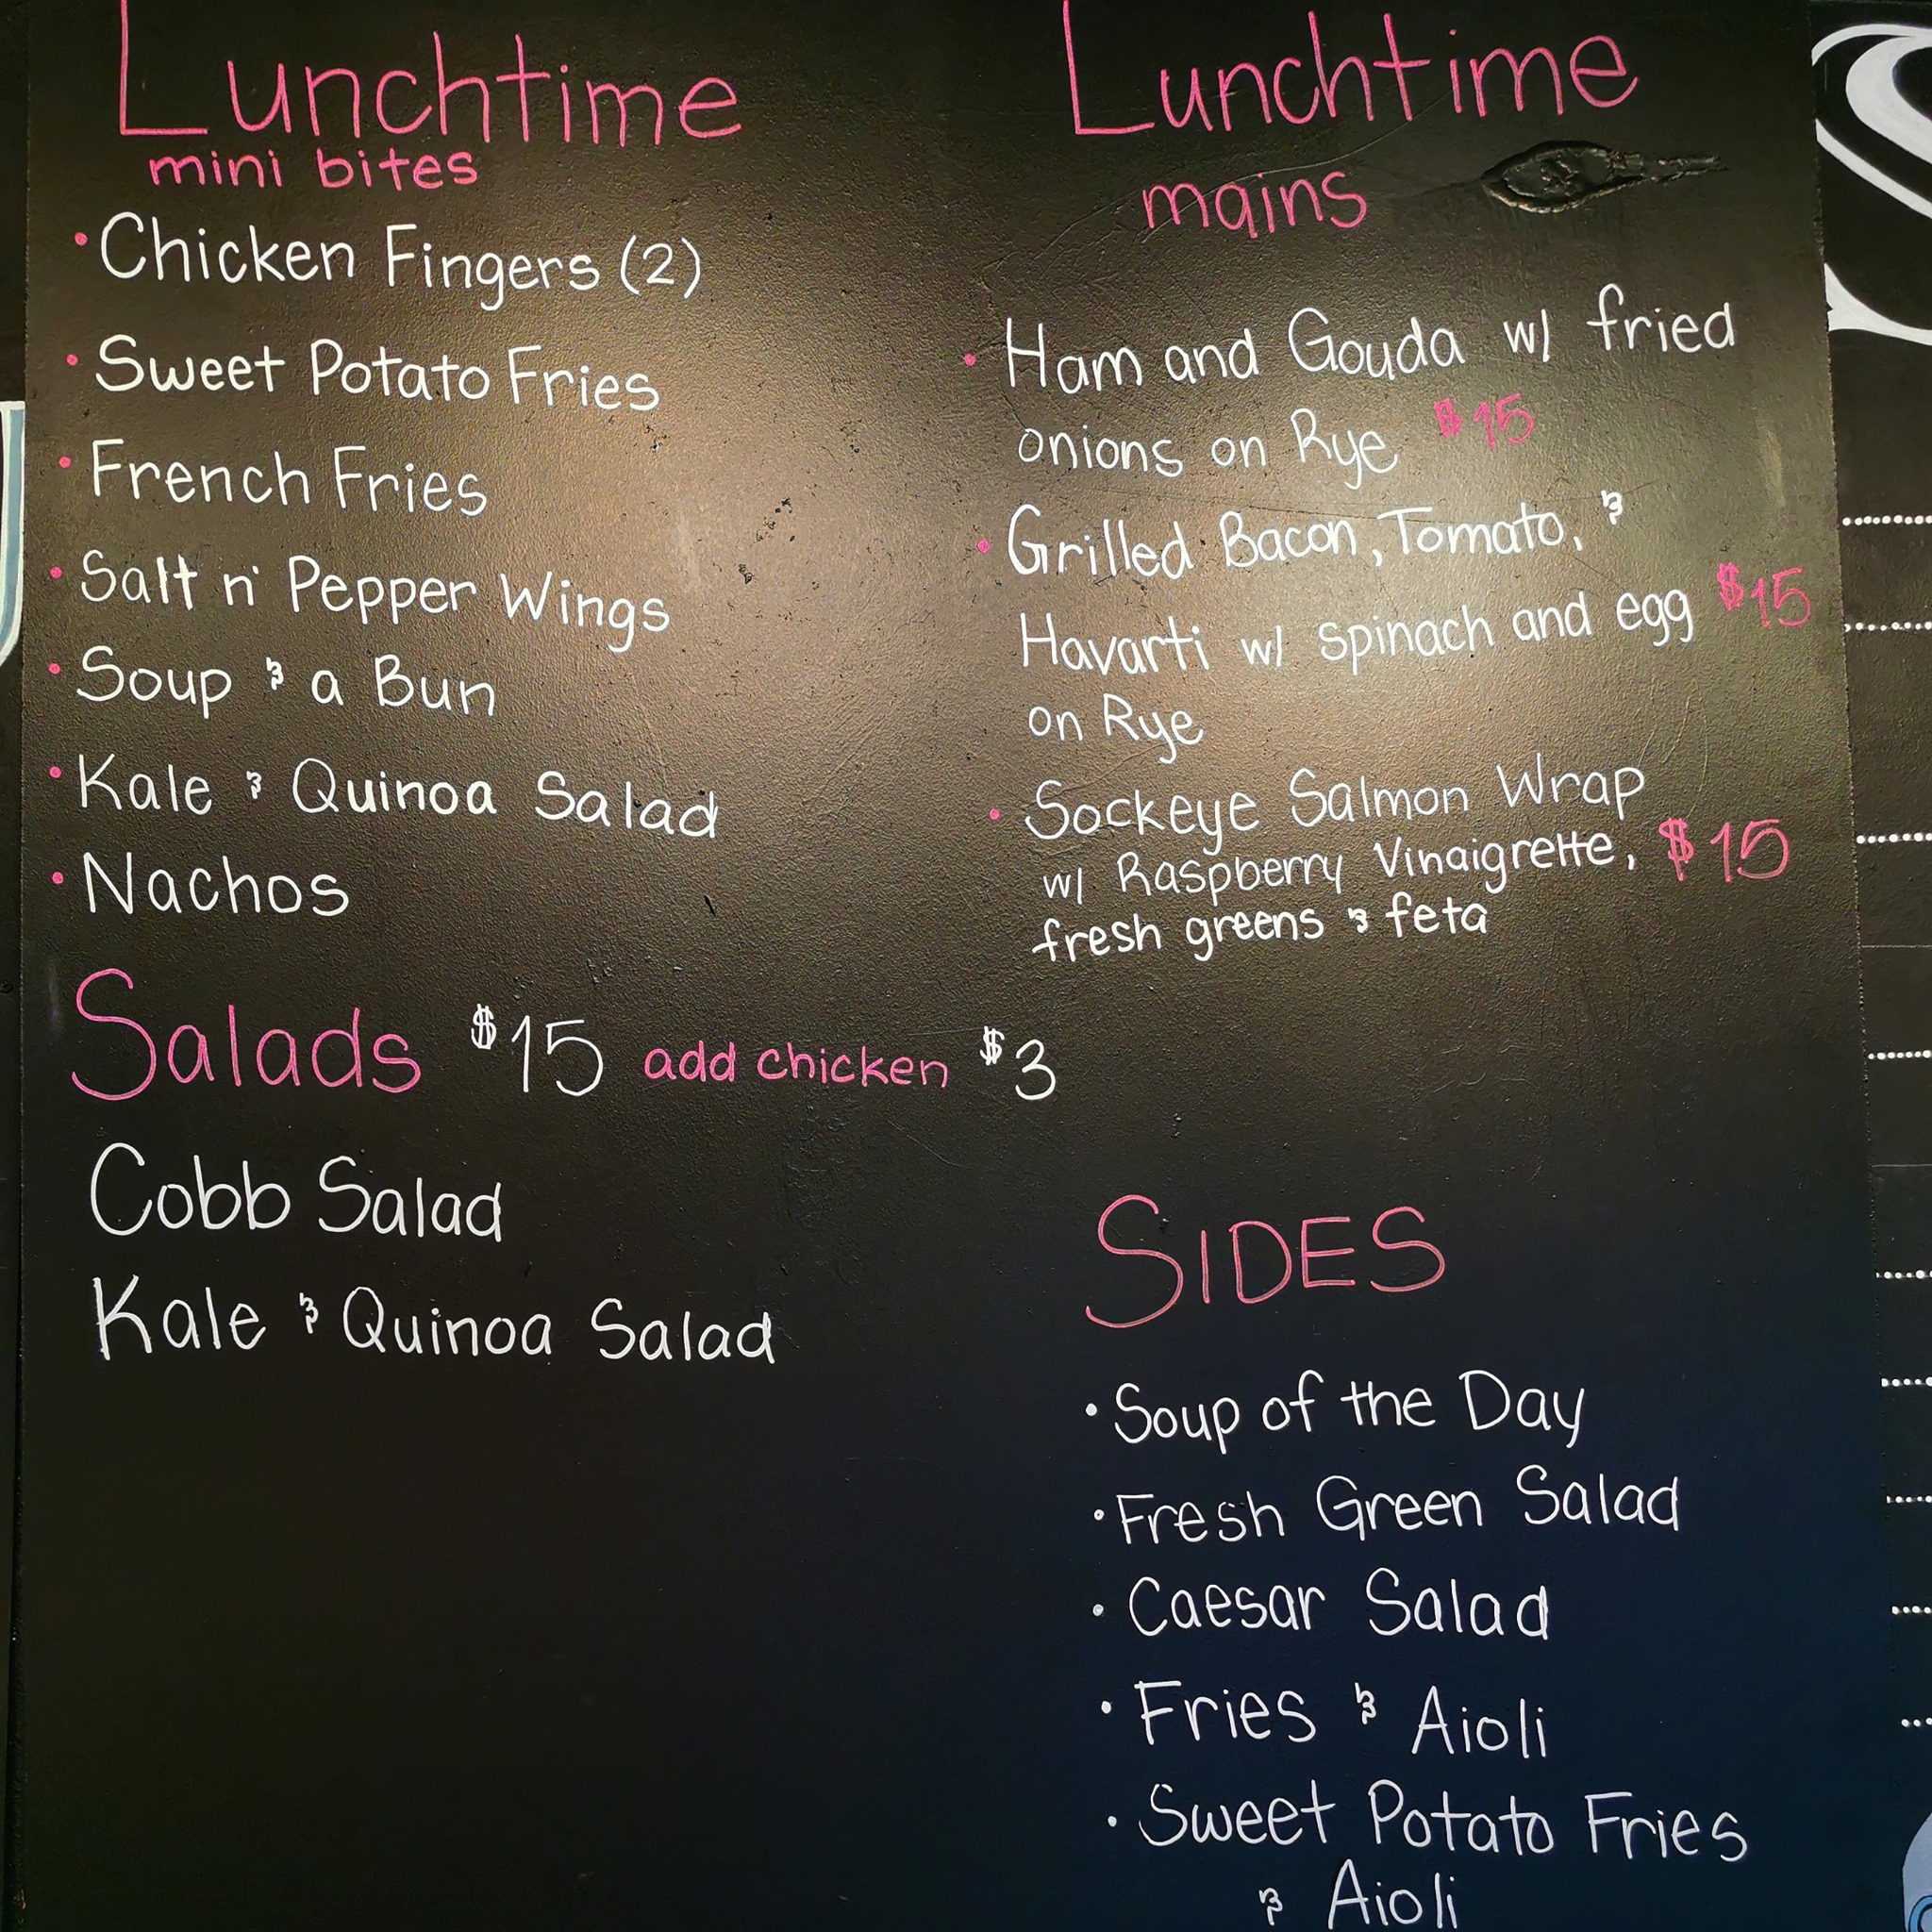 Lunchtime
mini bites
• Chicken Fingers (2)
• Sweet Potato Fries
• French Fries
• Salt n' Pepper Wings
• Soup & a Bun
• Kale & Quinoa Salad
• Nachos
Salads $15 add chicken $3
Cobb Salad
Kale & Quinoa Salad
Lunchtime
mains
• Ham and Gouda w/ fried
onions on Rye $15
• Grilled Bacon, Tomato, &
Havarti w/ spinach and egg $15
on Rye
• Sockeye Salmon Wrap
w/ Raspberry Vinaigrette, $15
fresh greens & feta
SIDES
• Soup of the Day
• Fresh Green Salad
• Caesar Salad
• Fries & Aioli
• Sweet Potato Fries
& Aioli